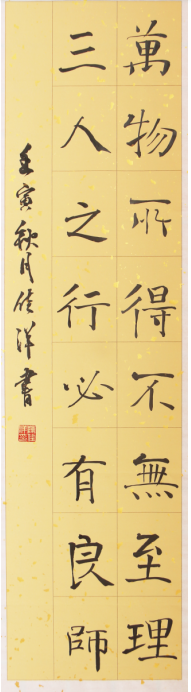 萬物所得不無至理
三人之行必有良師
壬寅秋月佳洋書